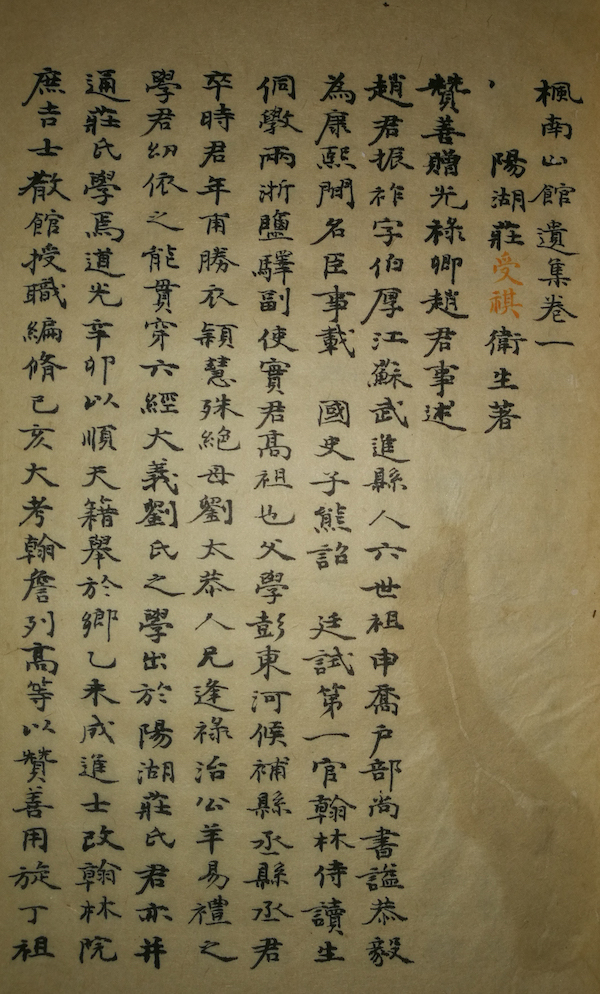 楓南山館遺集卷一
陽湖莊受祺衛生著
贊善贈光祿卿趙君事述
趙君振祚字伯厚江蘇武進縣人六世祖申喬戶部尚書諡恭毅
為康熙間名臣事載 國史子熊詔 廷試第一官翰林侍讀生
侗斆兩浙鹽驛副使實君高祖也父學彭東河候補縣丞縣丞君
卒時君年甫勝衣穎慧殊絕母劉太恭人兄逢祿治公羊易禮之
學君幼依之能貫穿六經大義劉氏之學出於陽湖莊氏君亦并
通莊氏學焉道光辛卯以順天籍舉於鄉乙未成進士改翰林院
庶吉士散館授職編脩己亥大考翰詹列高等以贊善用旋丁祖